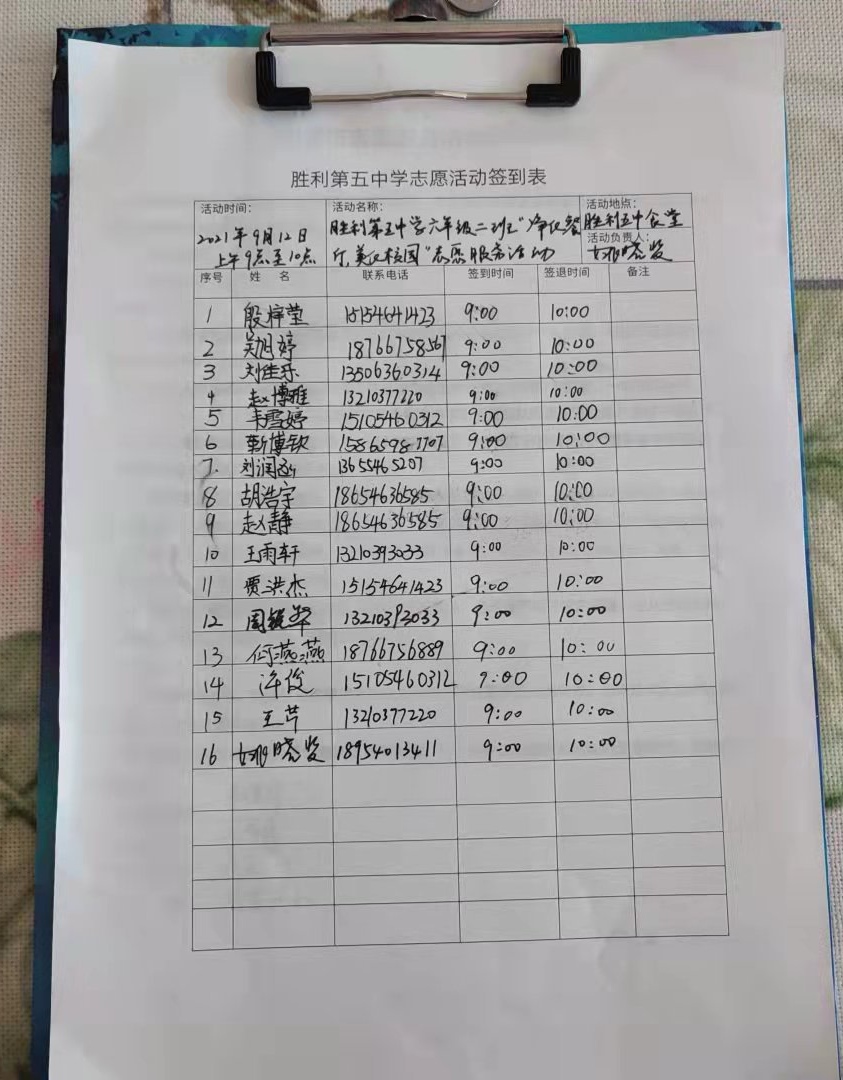 胜利第五中学志愿活动签到表
活动时间: 活动名称: 活动地点:
2021年9月12日 胜利第五中学六年级二班"净化餐 胜利五中食堂
上午9点至10点 厅,美化校园"志愿服务活动 活动负责人:
序号 姓 名 联系电话 签到时间 签退时间 备注
1 殷梓莹 15154641423 9:00 10:00
2 吴月婷 18766758567 9:00 10:00
3 刘佳乐 13506360314 9:00 10:00
4 赵博雅 13210377220 9:00 10:00
5 韦雪婷 15105460312 9:00 10:00
6 靳博钦 15865987707 9:00 10:00
7. 刘润函 13655465207 9:00 10:00
8 胡浩宇 18654636585 9:00 10:00
9 赵静 18654636585 9:00 10:00
10 王雨轩 13210393033 9:00 10:00
11 贾洪杰 15154641423 9:00 10:00
12 周 13210393033 9:00 10:00
13 何燕燕 18766756889 9:00 10:00
14 15105460312 9:00 10:00
15 王芹 13210377220 9:00 10:00
16 18954013411 9:00 10:00